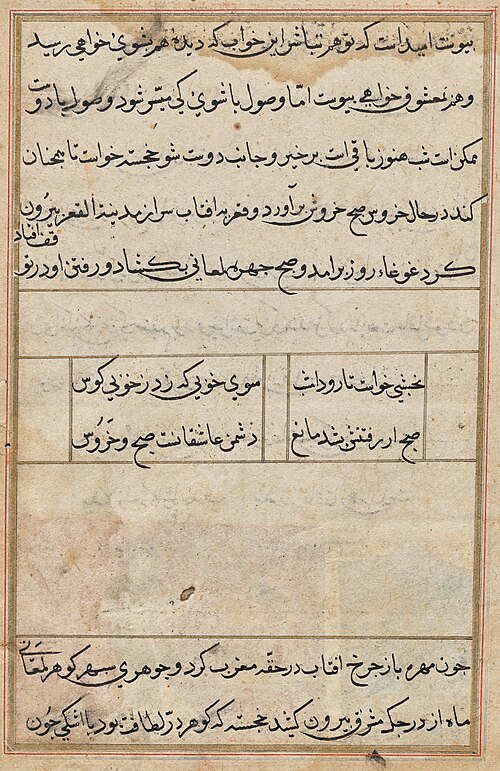 پیوست امیداست که تو هم بتباشر این خواب که دیدهٔ هم بشوی خواهی رسید
و هم بمعشوق خواهی پیوست امّا وصول با شوی کی میسّر شود و وصول با دوست
ممکن است شب هنوز باقی است برخیز و جانب دوست شو خجسته خواست تا همچنان
کند در حال خروس صبح خروش برآورد و قعر بهٔ افتاب سر از مدینة القعر بیرون
کرد غوغاء روز برامد و صبح چهره لمعانی بکشاد و رفتن او در توقف افتاد
نخشبی خواست تا رود امشب سوی خوبی که زد ز خوبی کوس
صبح از رفتنش شد مانع دشمن عاشقانست صبح و خروس
چون مهره باز چرخ افتاب در حقه مغرب کرد و جوهری سپهر کوهر لمعانی
ماه از درجک مشرق بیرون کشید خجسته که کوهر درّ لطافت بود با اشکی چون